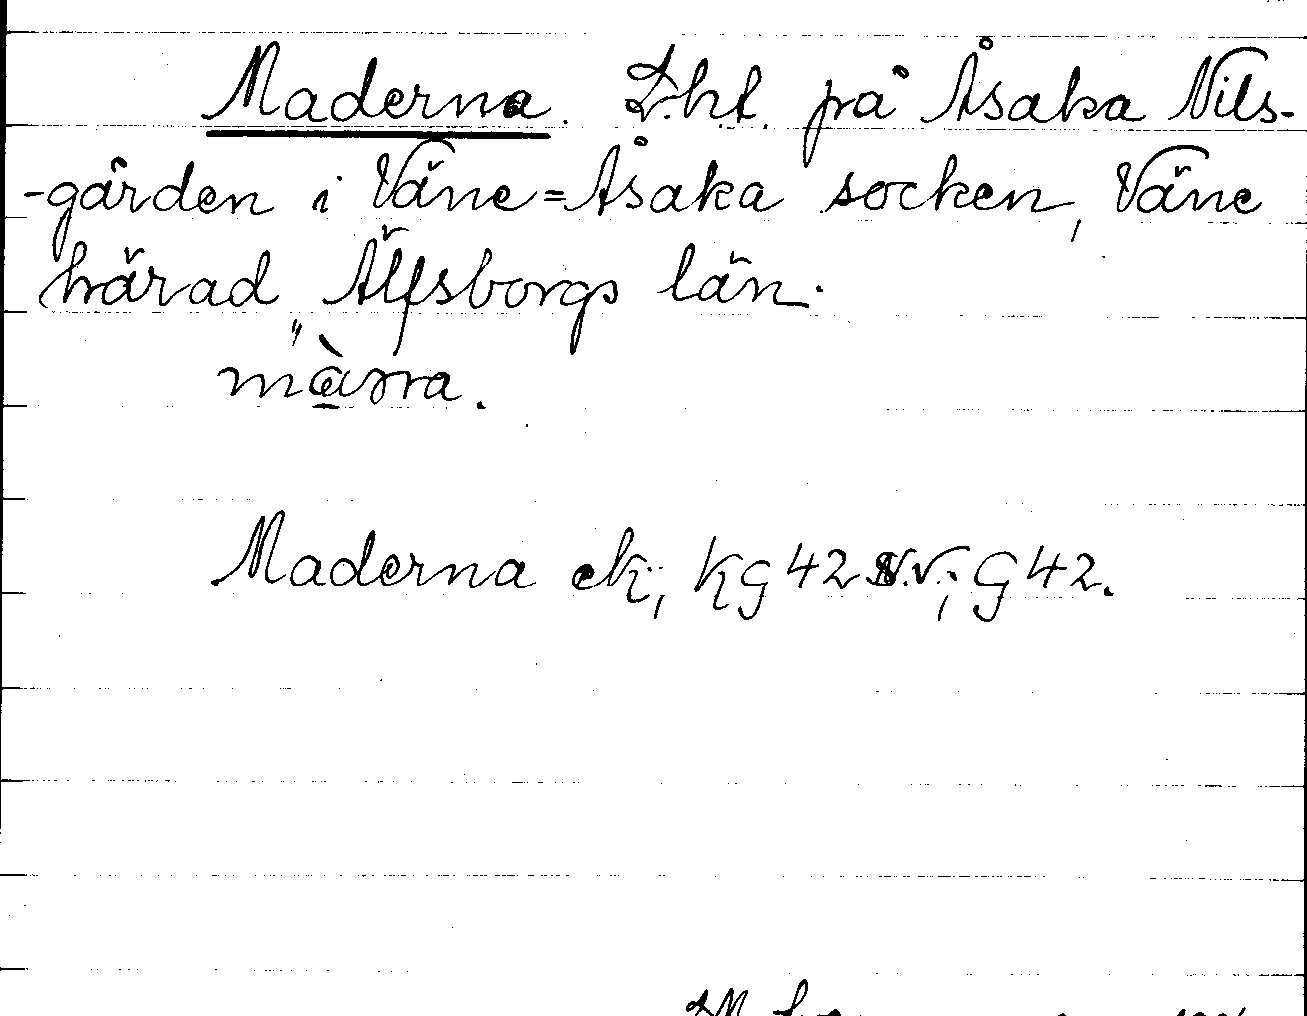 Maderna. Lht. på Åsaka Nils-
-gården i Väne=Åsaka socken, Väne
härad Älfsborgs län.
Maderna ek, KG 42 N.V.; G 42.